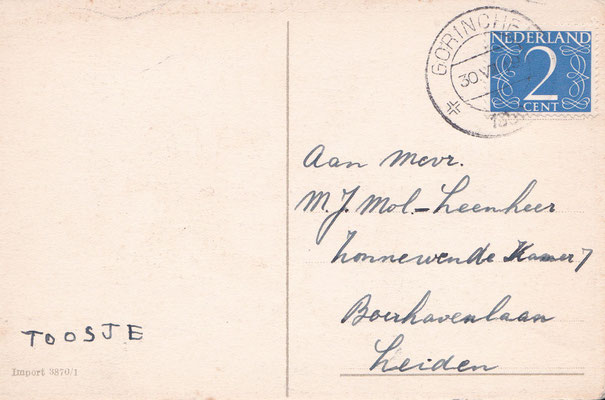 GORINCHE
30.VI
NEDERLAND
2
CENT
Aan Mevr.
M.J. Mol-Leenheer
Zonnewende Kamer 7
Boerhavenlaan
Leiden
TOOSJE
Import 3870/1